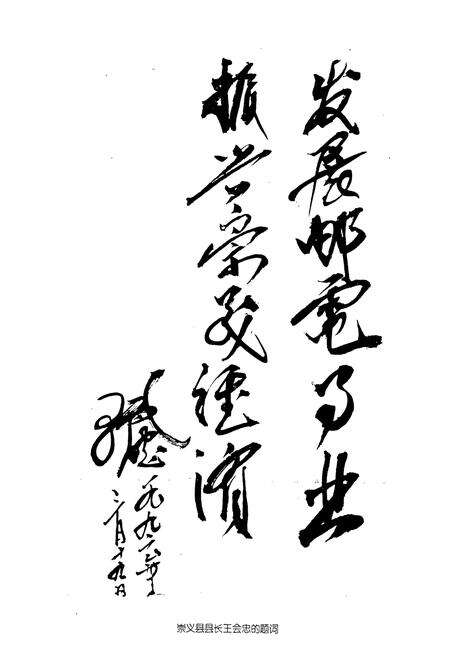 发展邮電事业
振兴崇义经济
王会忠
一九九六年
二月十九日
崇义县县长王会忠的题词